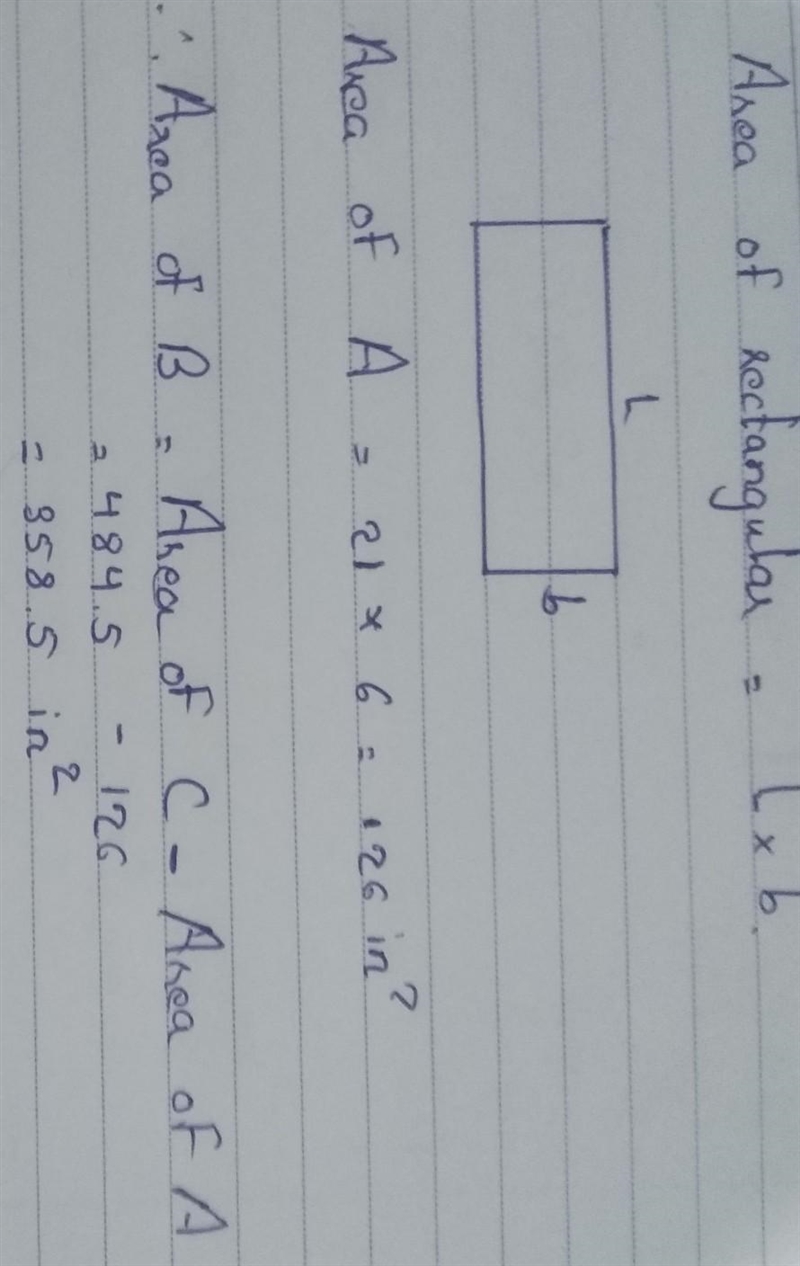 Area of rectangular = L × b.
L
b
Area of A = 21 × 6 = 126 in²
∴ Area of B = Area of C - Area of A
= 484.5 - 126
= 358.5 in²